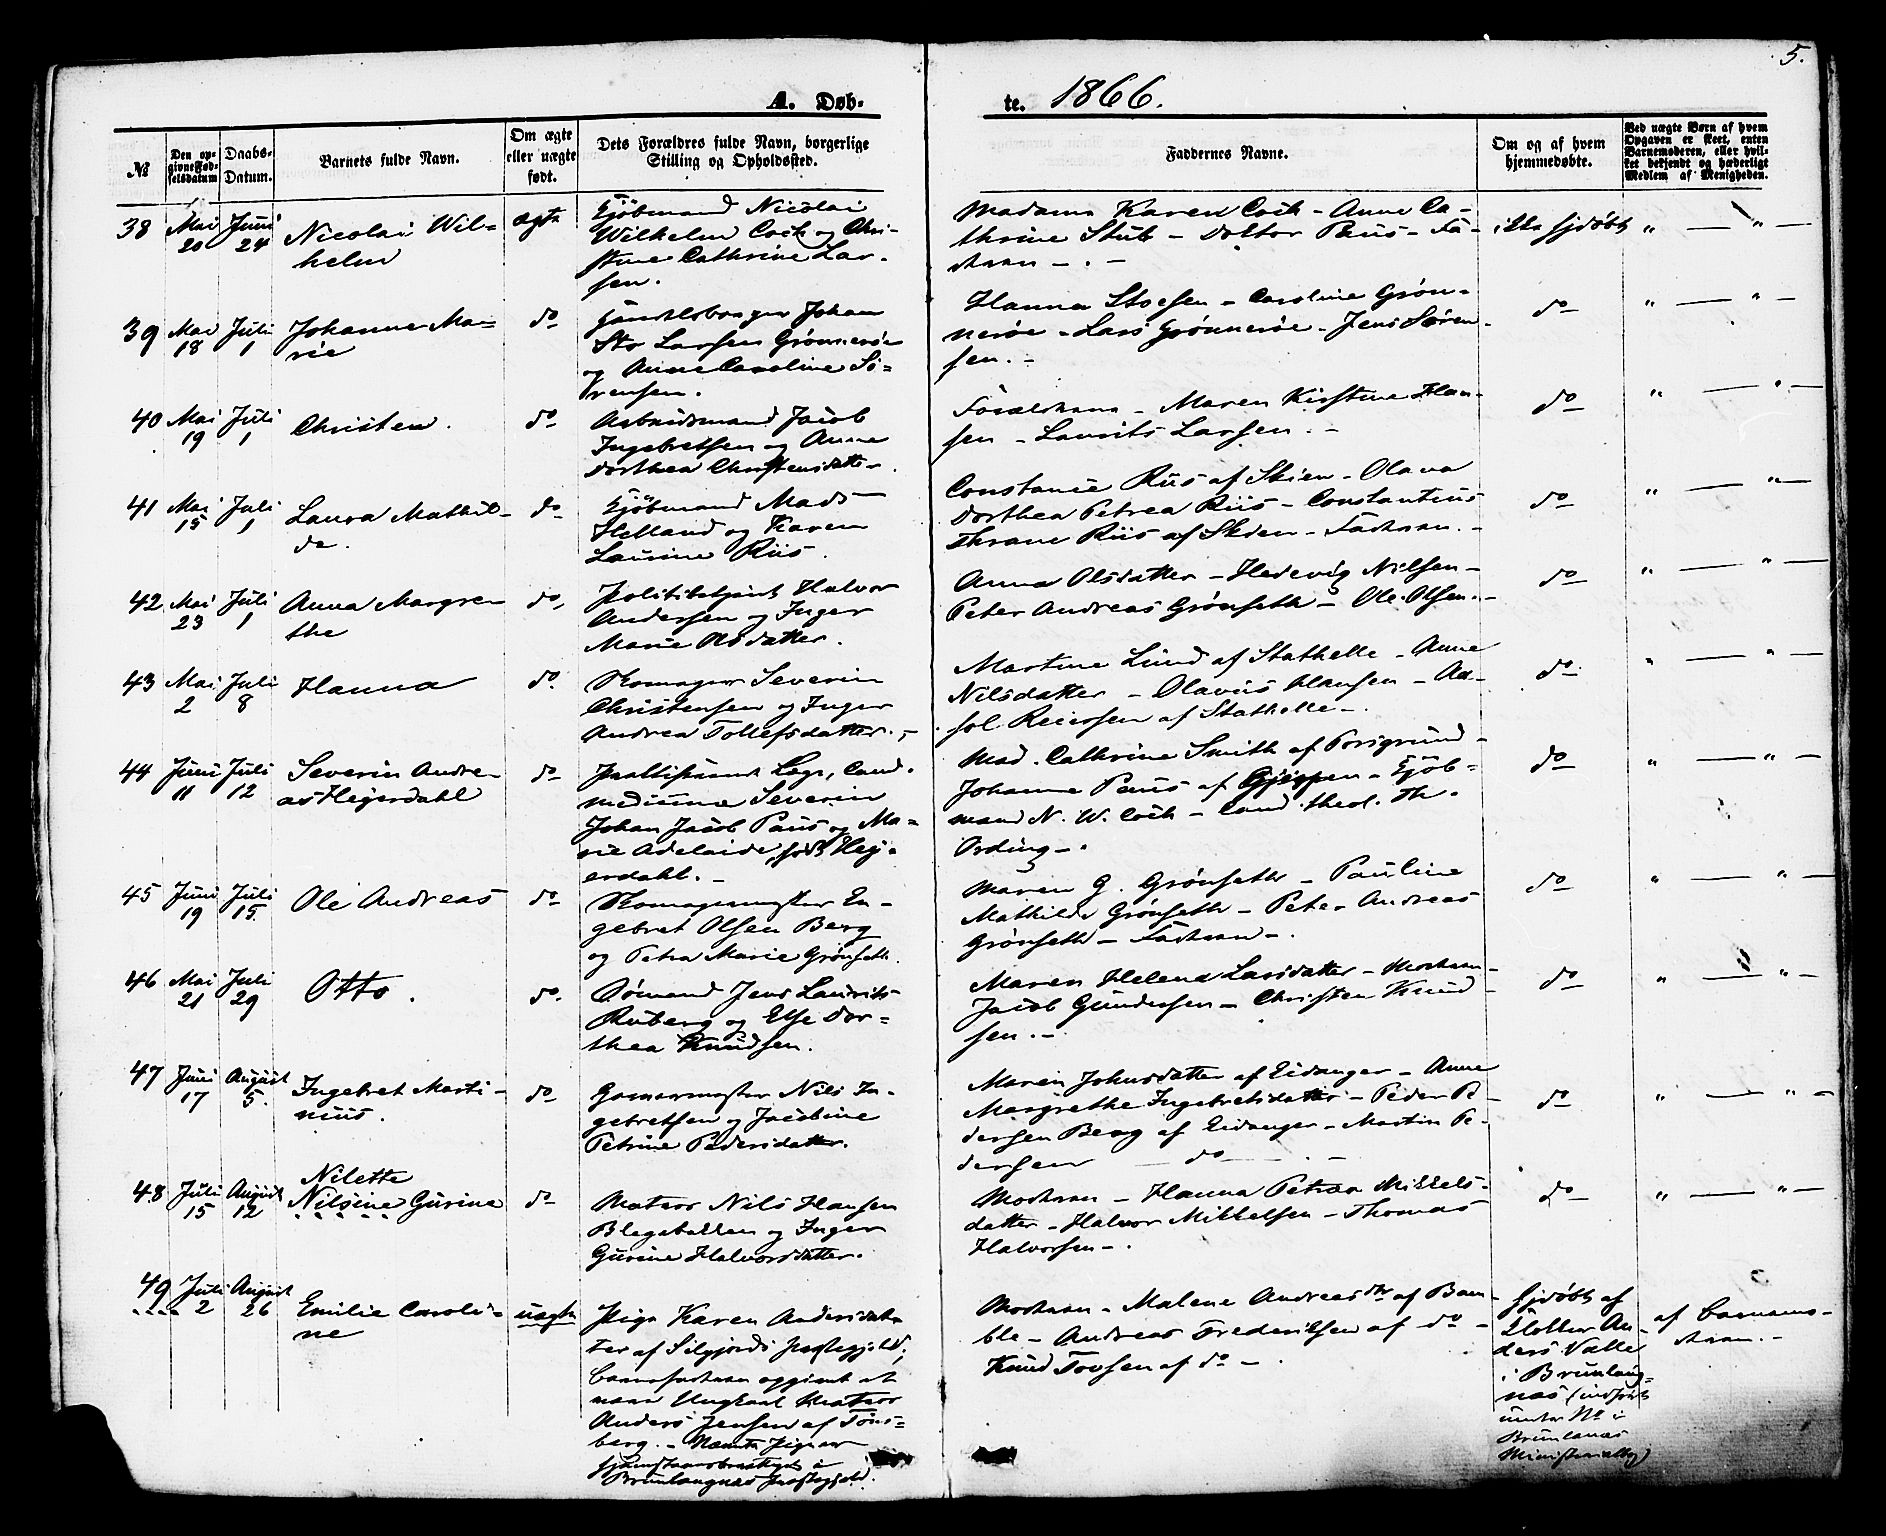 5.
A. Døb-
te. 1866.
№
Den op-
givne Fød-
selsdatum
Daabs-
Datum.
Barnets fulde Navn.
Om ægte
eller uægte
født.
Dets Forældres fulde Navn, borgerlige
Stilling og Opholdssted.
Faddernes Navne.
Om og af hvem
hjemmedøbte.
Ved uægte Børn af hvem
Opgaven er skeet, enten
Barnemoderen, eller hvil-
ket bekjendt og hæderligt
Medlem af Menigheden.
38
Mai
20
Juni
24
Nicolai Wil-
helm
ægte
Kjøbmand Nicolai
Wilhelm Coch og Chri-
stine Cathrine Lar-
sen.
Madame Karen Coch - Anne Ca-
thrine Stub - Doktor Paus - Fa-
deren -
ikke hjdøbt
" — " —
39
Mai
18
Juli
1
Johanne Ma-
rie
do
Johan
Larsen Grønnerøe
og Anne Caroline Sö-
rensen.
Hanna Stoesen - Caroline Grøn-
nerøe - Lars Grønnerøe - Jens Søren-
sen. -
do
" — " —
40
Mai
19
Juli
1
Christen.
do
Arbeidsmand Jacob
Ingebretsen og Anne
Dorthea Christensdatter.
Forældrene - Maren Kirstine Han-
sen - Laurits Larsen. -
do
" — " —
41
Mai
15
Juli
1
Laura Mathil-
de.
do
Kjöbmand Mads
Helland og Karen
Laurine Riis.
Constance Riis af Skien - Olava
Dorthea Petrea Riis - Constantius
Thrane Riis af Skien - Faderen. -
do
" — " —
42
Mai
23
Juli
1
Anna Margre-
the
do
Politibetjent Halvor
Andersen og Inger
Marie Olsdatter.
Anna Olsdatter - Hedevig Nilsen -
Peter Andreas Grønseth - Ole Olsen. -
do
" — " —
43
Mai
2
Juli
8
Hanna
do.
Skomager Severin
Christensen og Inger
Andrea Tollefsdatter. -
Martine Lund af Stathelle - Anne
Nilsdatter - Olavus Hansen - Aa-
sol Reiersen af Stathelle -.
do
" — " —
44
Juni
11
Juli
12
Severin Andre-
as Heyerdahl
do
Praktiserende Læge, Cand.
medicinæ Severin
Johan Jacob Paus og Ma-
rie Adelaide, født Hey-
erdahl. -
Mad. Cathrine Smith af Porsgrund -
Johanne Paus af Gjerpen - Kjöb-
mand N. W. Coch - Cand. theol. Th.
Ording -.
do
" — " —
45
Juni
19
Juli
15.
Ole Andreas
do
Skomagermester En-
gebret Olsen Berg
og Petra Marie Grönseth.
Maren G. Grønseth - Pauline
Mathilde Grønseth - Peter Andreas
Grønseth - Faderen -.
do
" — " —
46
Mai
21
Juli
29
Otto.
do.
Sömand Jens Laurits
Ruberg og Else Dor-
thea Knudsen.
Maren Helena Larsdatter - Moderen -
Jacob Gundersen - Christen Knud-
sen. -
do
" — " —
47
Juni
17
August
5.
Ingebret Marti-
nius.
do
Garvermester Nils In-
gebretsen og Jacobine
Petrine Pedersdatter.
Maren Johnsdatter af Eidanger - Anne
Margrethe Ingebretsdatter - Peder Pe-
dersen Berg af Eidanger - Martin Pe-
dersen — do — . -
do
" — " —
48
Juli
15
August
12
Nilette
Nilsine Gurine
do
Matros Nils Hansen
Blegebakken og Inger
Gurine Halvorsdatter.
Moderen - Hanna Petrea Mikkels-
datter - Halvor Mikkelsen - Thomas
Halvorsen -.
do
" — " —
49
Juli
2
August
26
Emilie Caroli-
ne
uægte
Pige Karen Andersdat-
ter af Silgjords Præstegjeld;
Barnefaderen opgivet at
være Ungkarl Matros
Anders Jensen af Töns-
berg. - Nævnte Pige var
i
Brunlaugnæs Præstegjeld.
Moderen - Malene Andreasdtr af Bam-
ble - Andreas Frederiksen af do -
Knud Tovsen af do -.
hjdøbt af
Klokker An-
ders Valle
i Brunlaug-
næs (indført
under No i
Brunlanæs
Ministerialbog)
af Barnemo-
deren. -